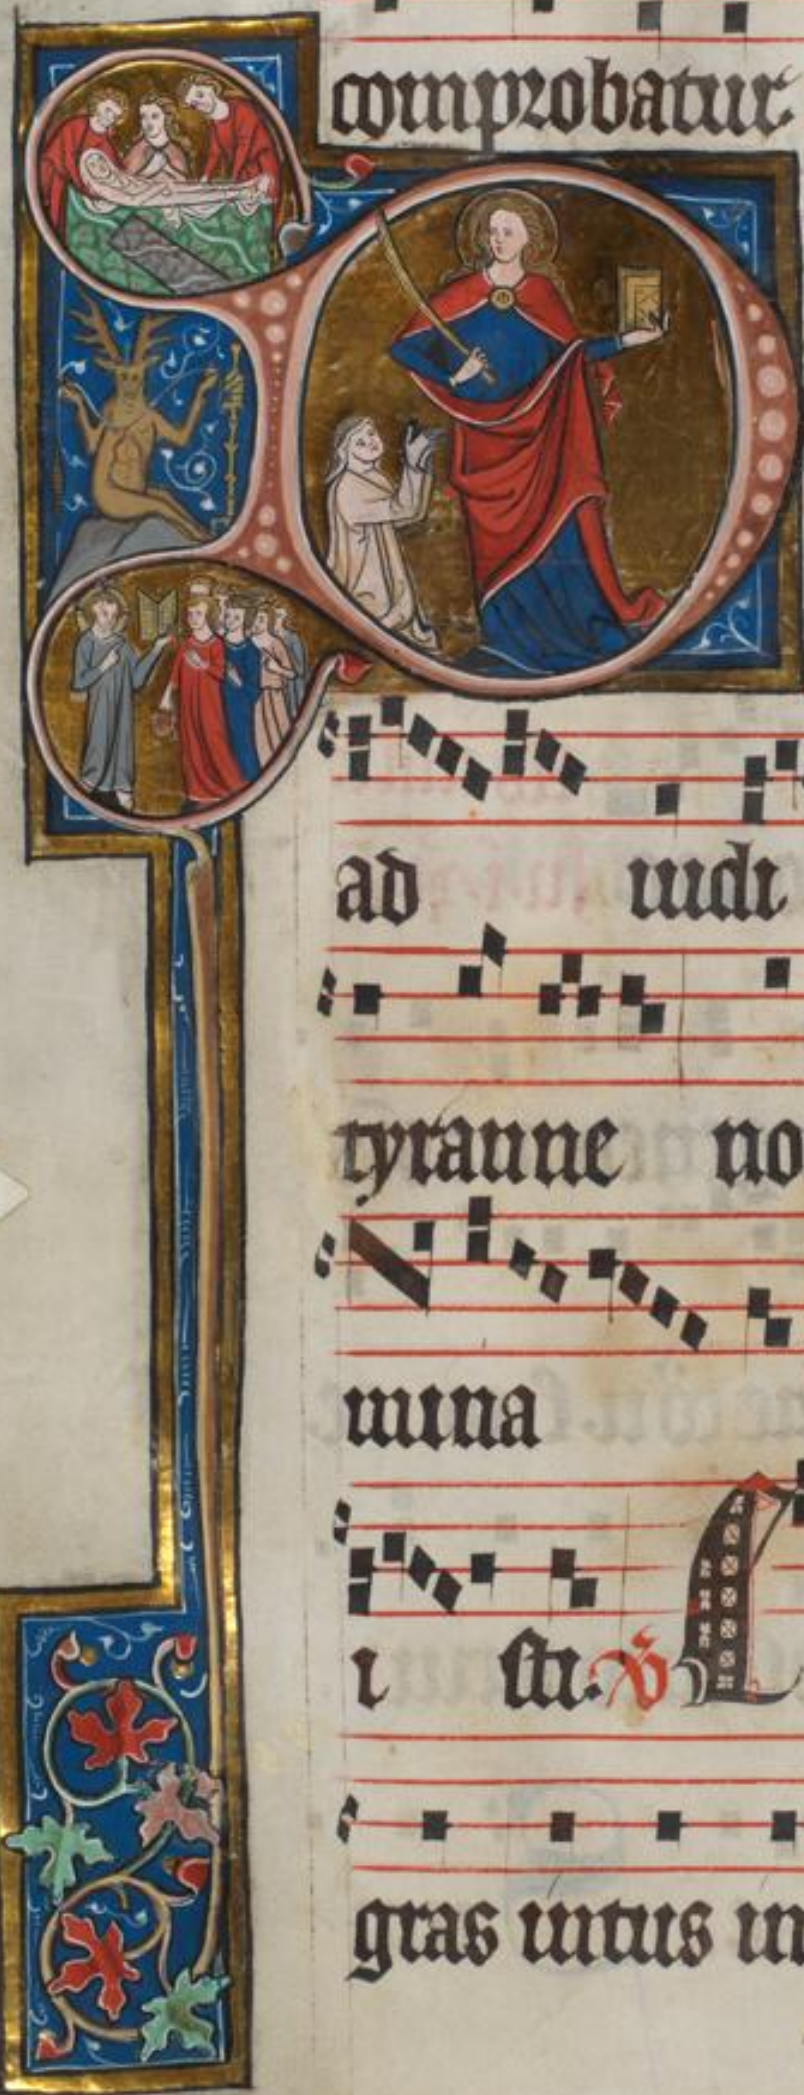 comprobatur.
ad iudi
tyranne no
mina
i sti. V L
gras intus in